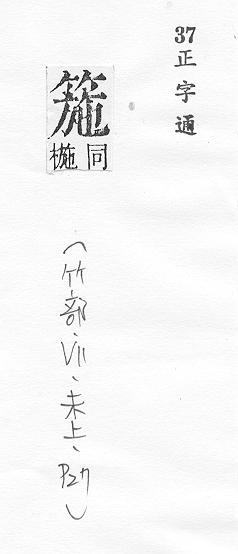 37正字通
箷同椸
（竹部、VII、未上、P27）